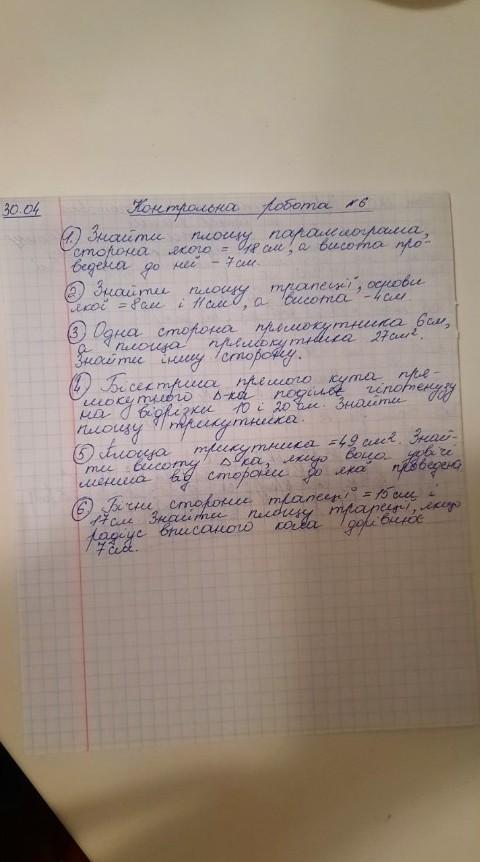 30.04 Контрольна робота №6
1. Знайти площу паралелограма,
сторона якого = 18см, а висота про-
ведена до неї - 7см.
2 Знайти площу трапеції, основи
якої = 8см і 11см, а висота - 4см
3 Одна сторона прямокутника 6см,
а площа прямокутника 27см².
Знайти іншу сторону.
4 Бісектриса прямого кута пря-
мокутного Δ-ка поділяє гіпотенузу
на відрізки 10 і 20 см. Знайти
площу трикутника.
5 Площа трикутника = 49 см². Знай-
ти висоту Δ-ка, якщо вона удвічі
менша від сторони до якої проведена
6 Бічні сторони трапеції = 15см і
17см Знайти площу трапеції, якщо
радіус вписаного кола дорівнює
7см.